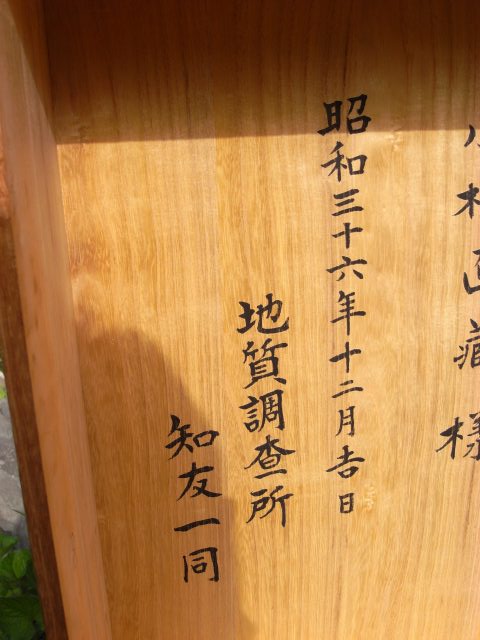 木
藏様
昭和三十六年十二月吉日
地質調査所
知友一同